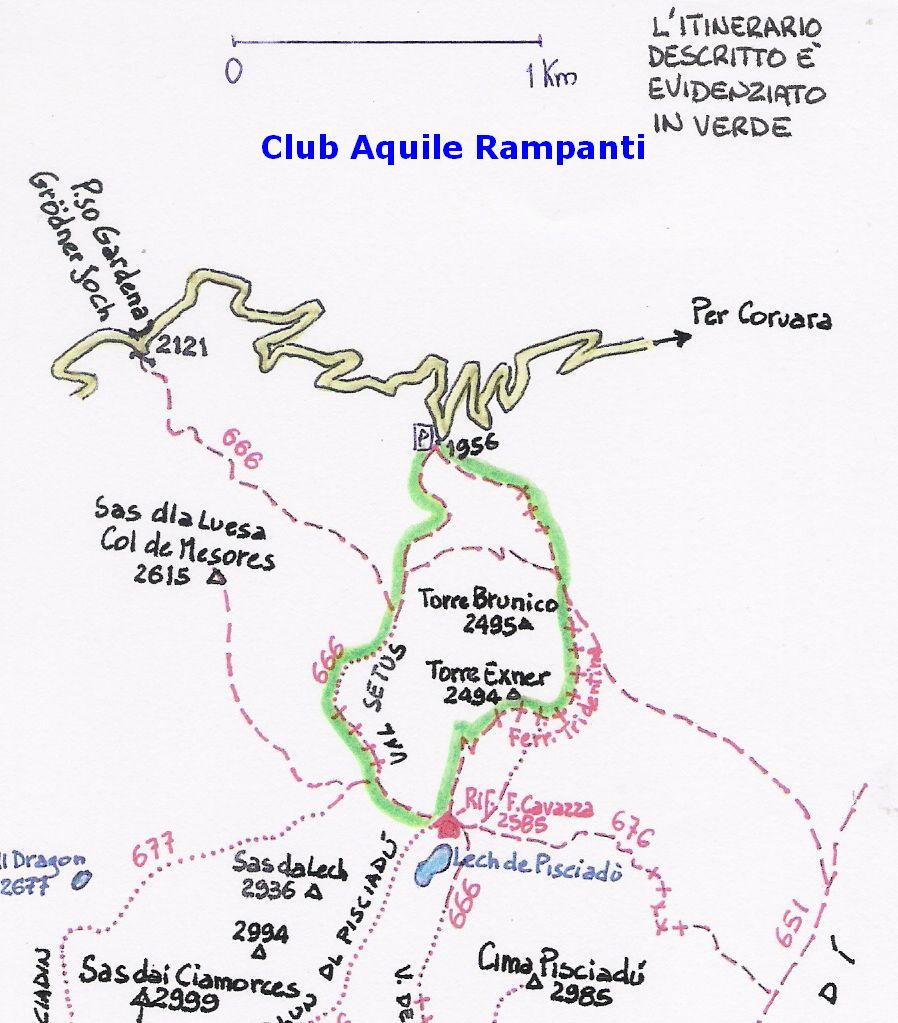 L'ITINERARIO
DESCRITTO È
EVIDENZIATO
IN VERDE
0
1 Km
Club Aquile Rampanti
P.so Gardena
Grödner Joch
2121
Per Corvara
P
1956
666
Sas dla Luesa
Col de Mesores
2615
Torre Brunico
2495
Torre Exner
2494
666
VAL SETUS
Ferr. Tridentina
Rif. F. Cavazza
2585
676
677
Lech de Pisciadù
666
651
Dragon
2677
Sas da Lech
2936
2994
DL PISCIADÚ
Sas dai Ciamorces
2999
Cima Pisciadú
2985
V.